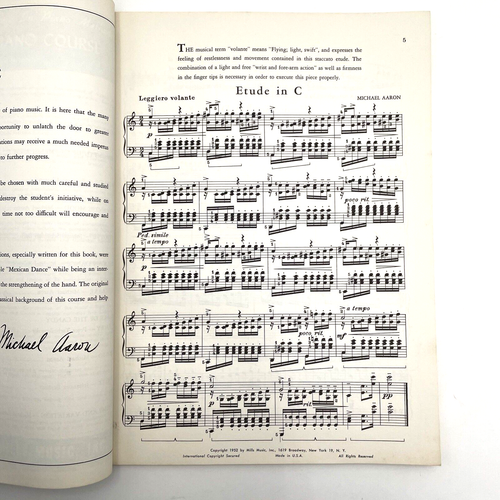 PIANO COURSE
of piano music. It is here that the many
opportunity to unlatch the door to greater
may receive a much needed impetus
to further progress.
be chosen with much careful and studied
destroy the student's initiative, while on
time not too difficult will encourage and
especially written for this book, were
"Mexican Dance" while being an
the strengthening of the hand. The original
classical background of this course and help
Michael Aaron
5
THE musical term "volante" means "Flying; light, swift", and expresses the
feeling of restlessness and movement contained in this staccato etude. The
combination of a light and free "wrist and fore-arm action" as well as firmness
in the finger tips is necessary in order to execute this piece properly.
Etude in C
Leggiero volante
MICHAEL AARON
p
poco rit.
Ped. simile
a tempo
p
a tempo
poco rit.
mf
rit.
pp
Copyright 1952 by Mills Music, Inc., 1619 Broadway, New York 19, N. Y.
International Copyright Secured Made in U.S.A. All Rights Reserved